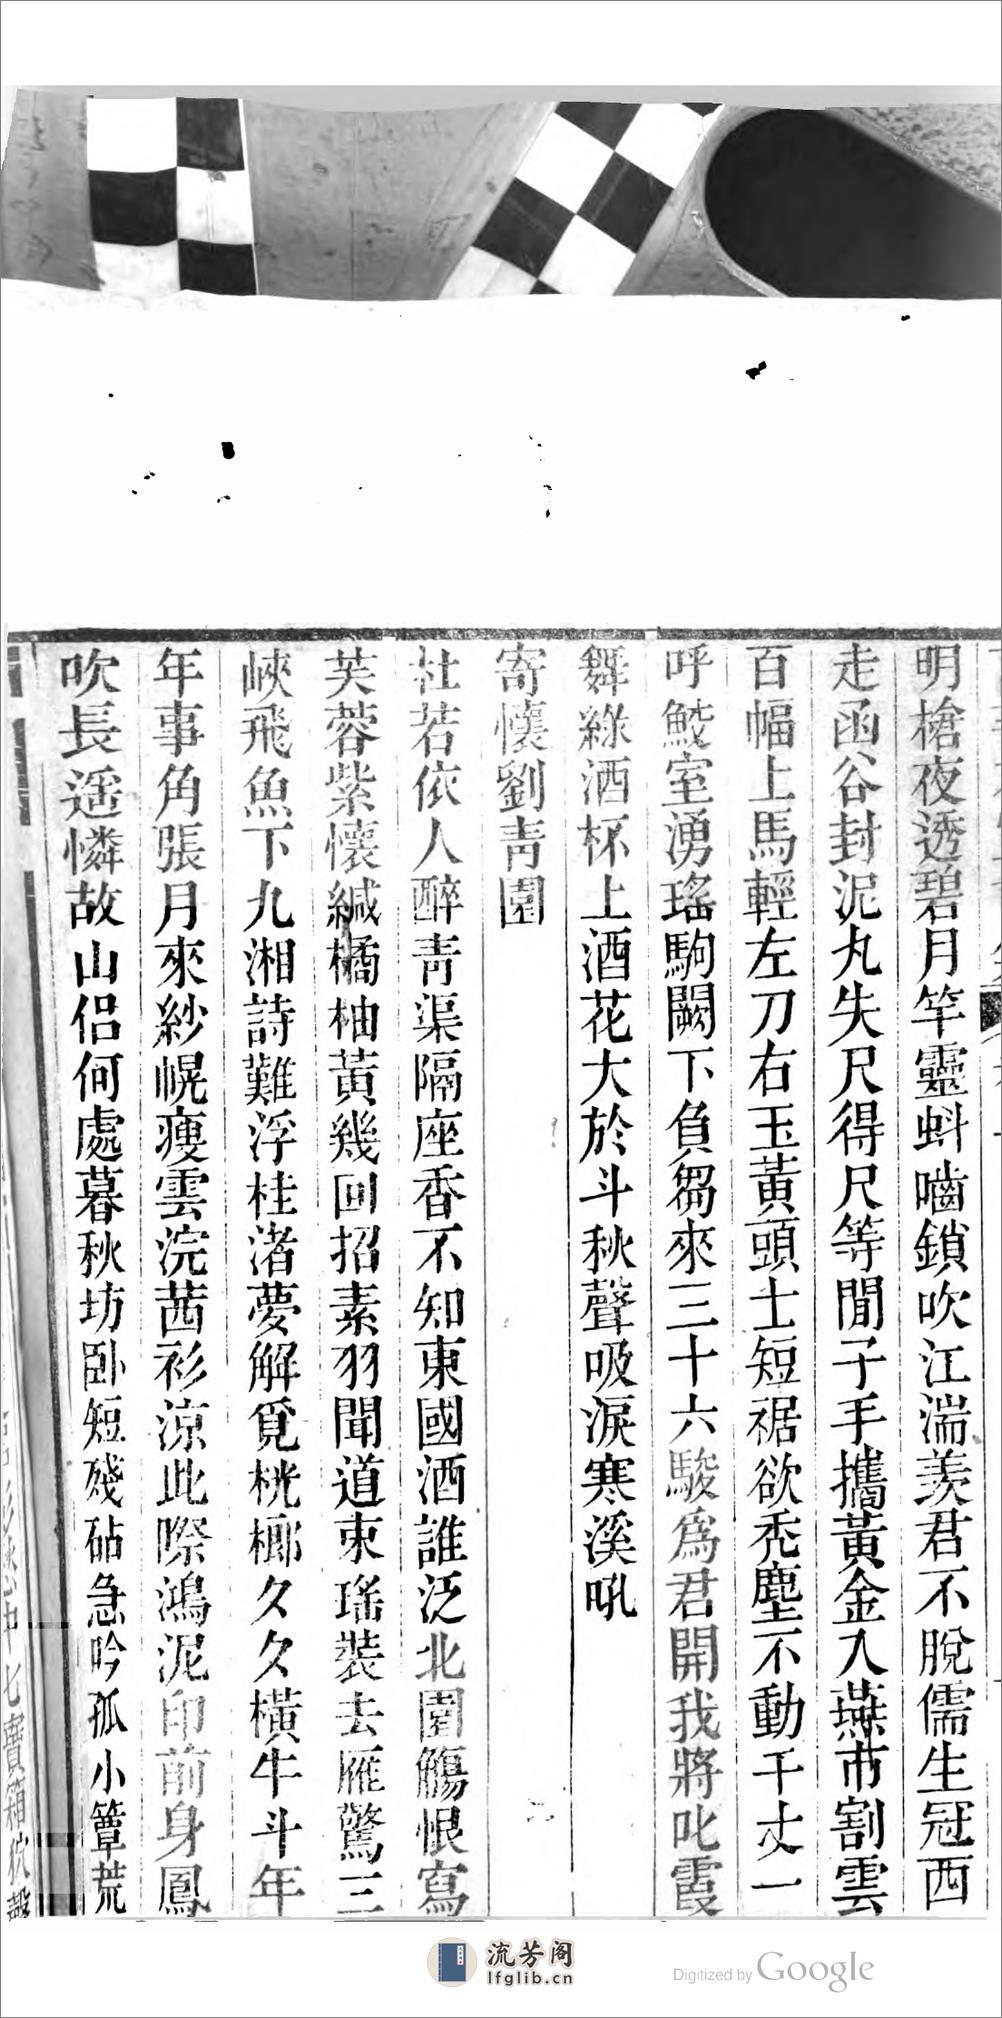 明槍夜透碧月竿靈蚪嚙鎖吹江湍羨君不脫儒生冠西
走函谷封泥丸失尺得尺等閒子手攜黃金入燕市割雲
百幅上馬輕左刀右玉黃頭士短裾欲禿塵不動千丈一
呼鮫室湧瑤駒闕下負芻來三十六駿爲君開我將叱霞
舞綠酒杯上酒花大於斗秋聲吸淚寒溪吼
寄懷劉青園
杜若依人醉青渠隔座香不知東國酒誰泛北園觴恨寫
芙蓉紫懷緘橘柚黃幾回招素羽聞道束瑤裝去雁驚三
峽飛魚下九湘詩難浮桂渚夢解覓桄榔久久橫牛斗年
年事角張月來紗幌瘦雲浣茜衫涼此際鴻泥印前身鳳
吹長遥憐故山侶何處暮秋坊卧短殘砧急吟孤小簟荒
流芳阁
lfglib.cn
Digitized by Google